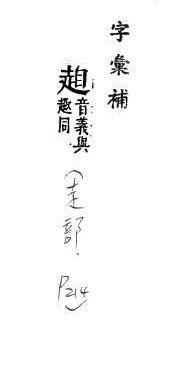 字彙補
音義與
趣同
（走部. P214）